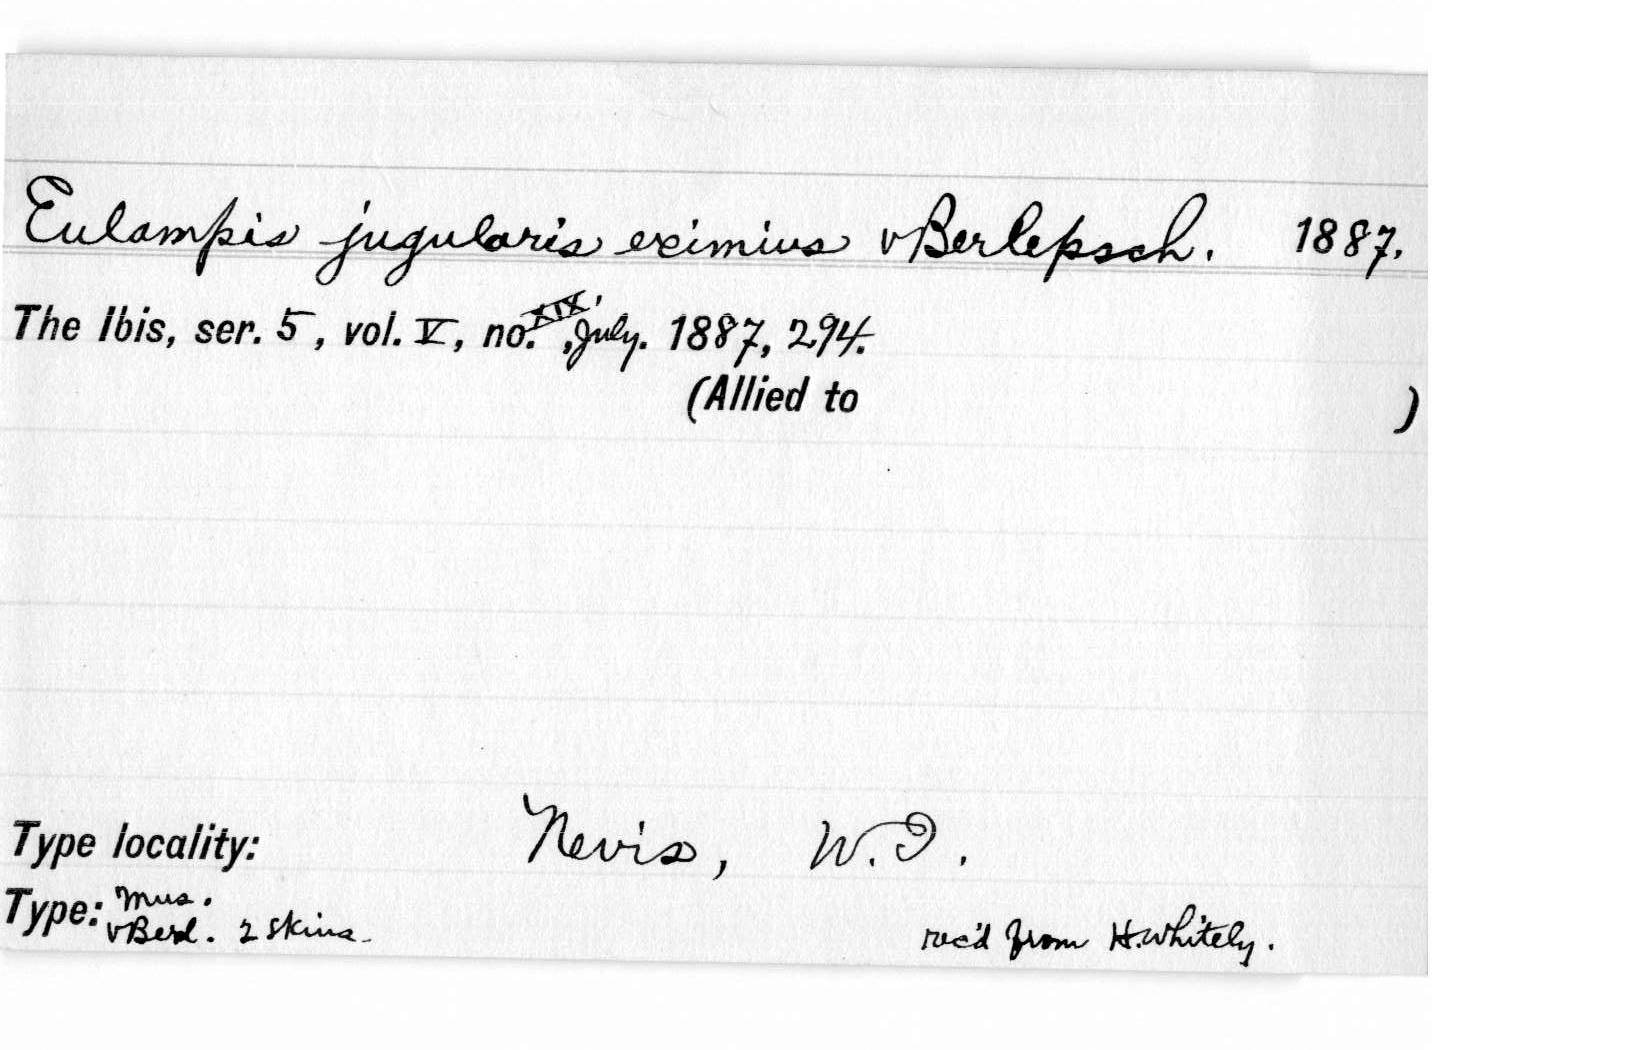 Eulampis jugularis eximius vBerlepsch. 1887.
The Ibis, ser. 5, vol. V, no. XIX, July. 1887, 294.
(Allied to )
Type locality: Nevis, W.I.
Type: Mus. vBerl. 2 skins. rec'd from H. Whitely.